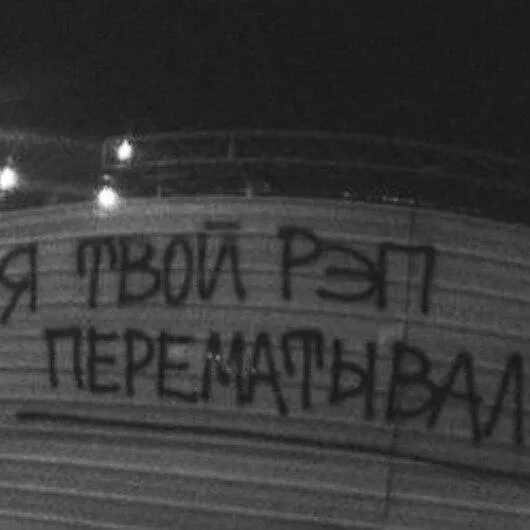 Я ТВОЙ РЭП
ПЕРЕМАТЫВАЛ